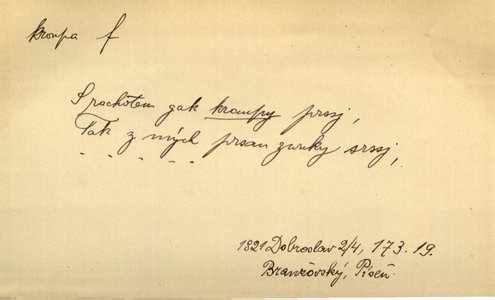 kroupa f
S rachotem gak kraupy prssj,
Tak z mých prsau zwuky srssj,
. . . . . .
1821 Dobroslav 2/4, 173. 19.
Branžovský, Píseň.